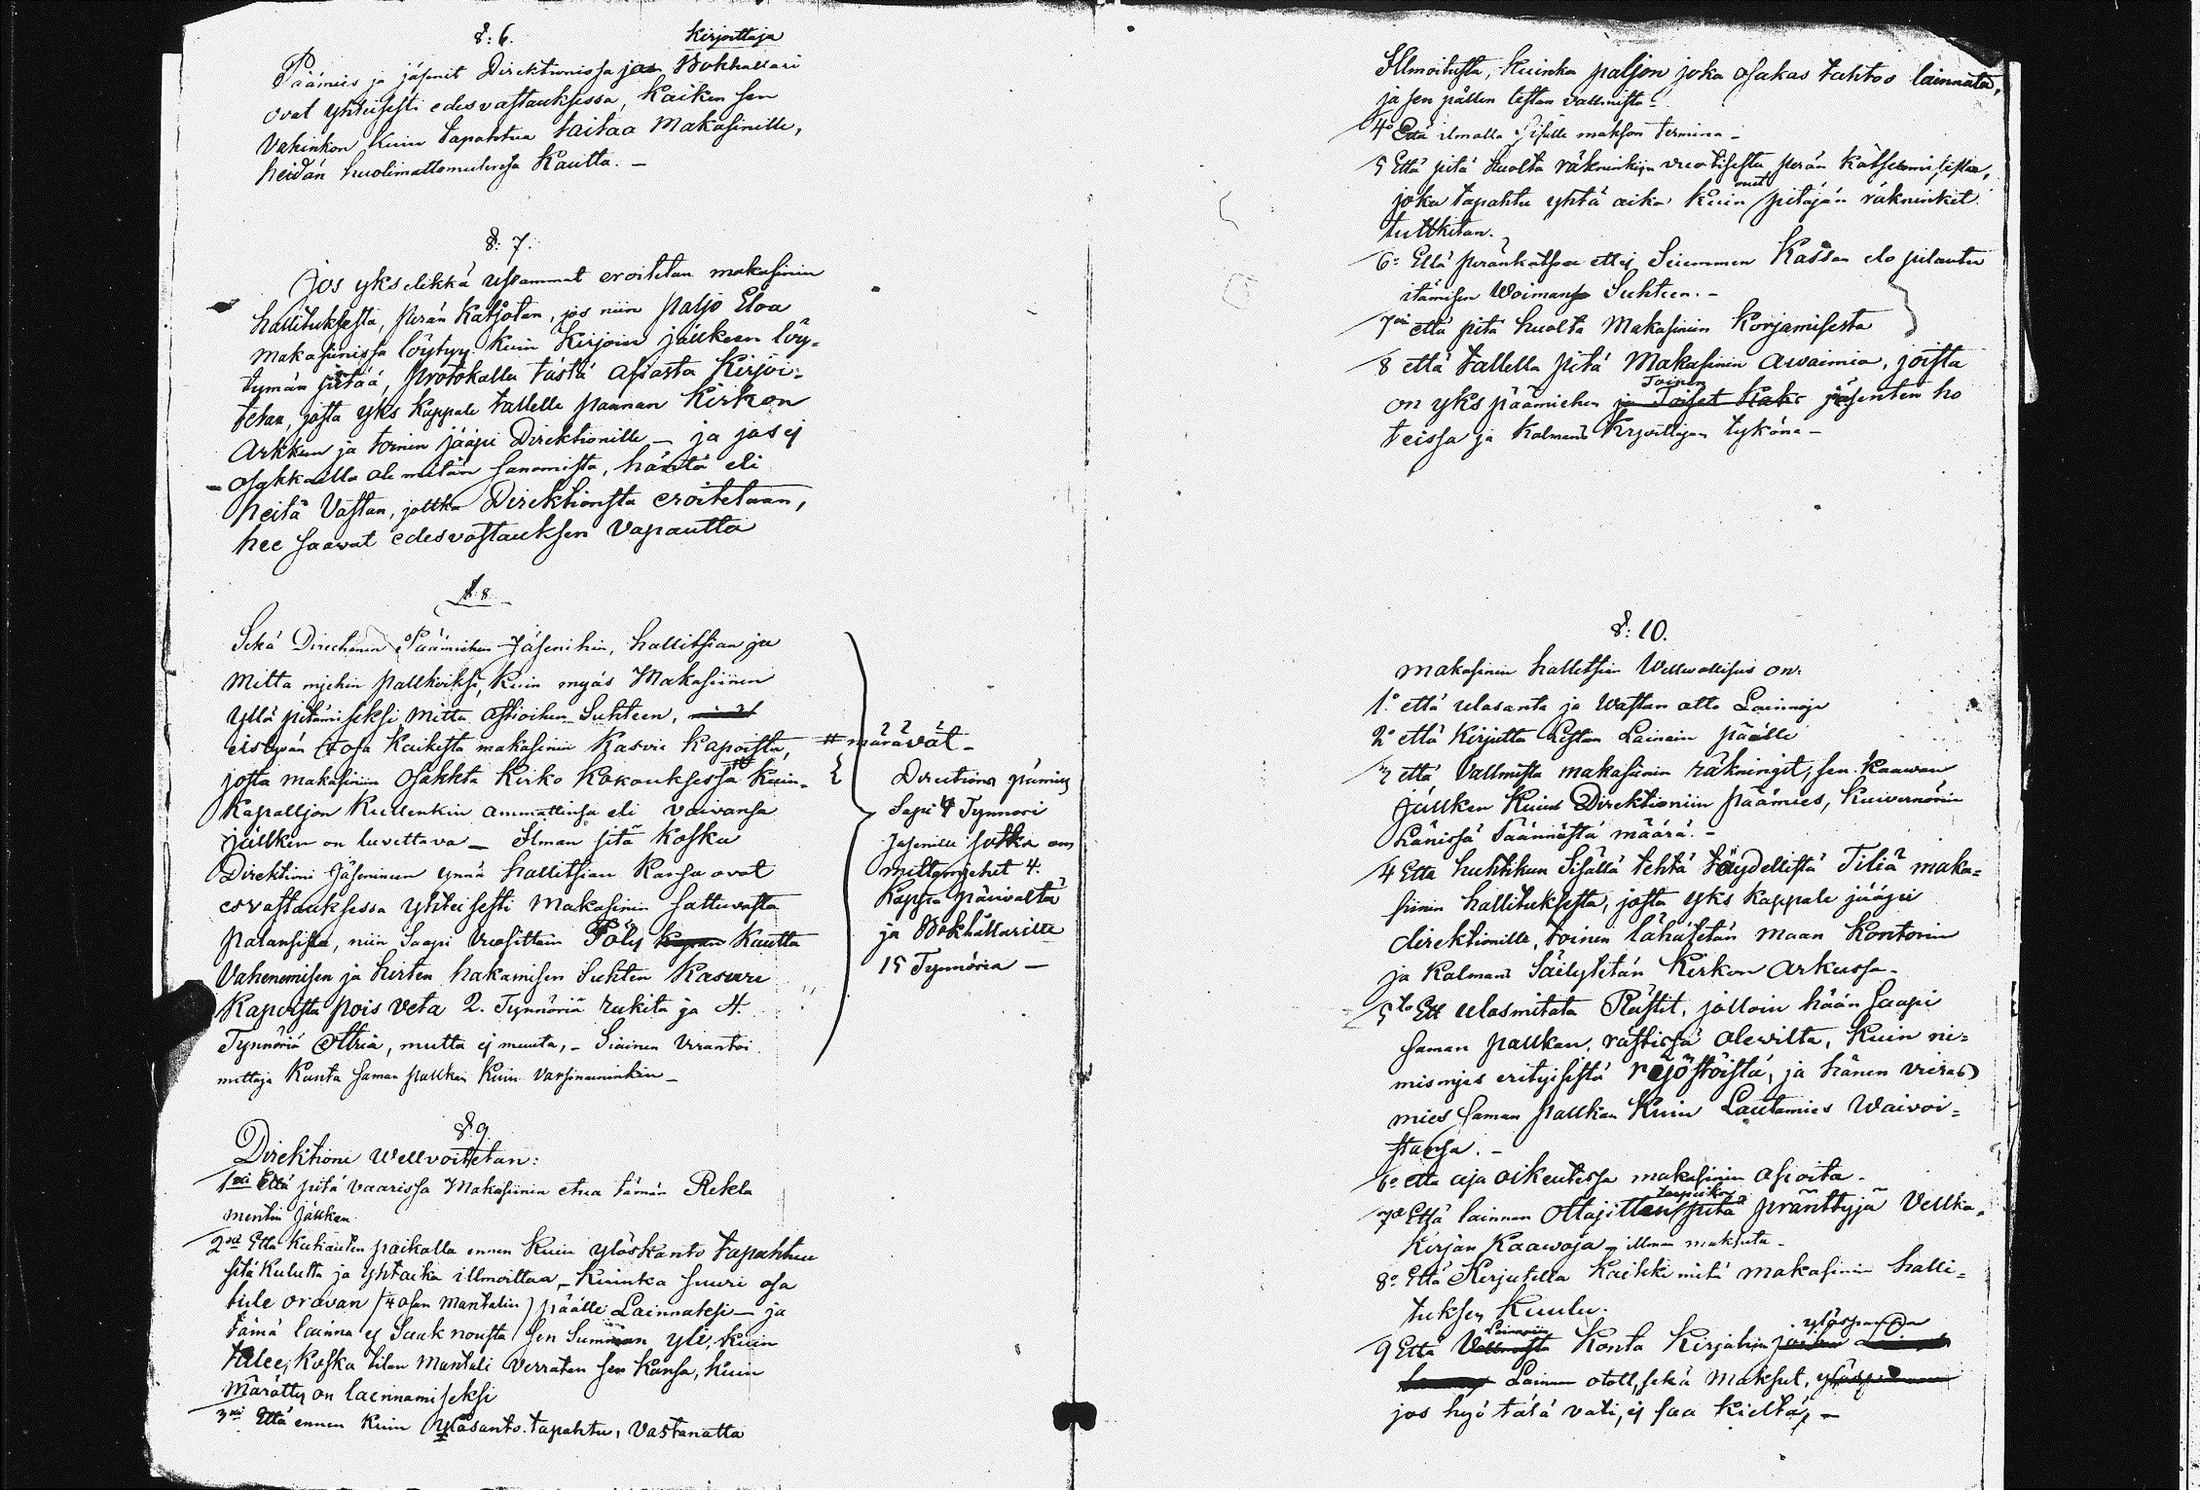 §: 6.
Kirjoittaja
Päämies ja jäsenit Direktionissa ja Bokhallari
ovat yhteisesti edesvastauksessa, kaiken sen
Vahinkon kuin tapahtua taitaa Makasinille,
heidän huolimattomutensa kautta. –
§: 7.
Jos yks elikkä usiammat eroitetan makasinin
hallituksesta, perän katsotan, jos niin paljo Eloa
makasinissa löytyy kuin Kirjoin jälkeen löy-
tymän pitää, protokalla tästä asiasta Kirjoi-
tetan, josta yks kappale tallelle pannan Kirkon
Arkkun ja toinen jääpi Direktionille – ja jos ej
osakkailla ole mitän sanomista, häntä eli
heitä Vastan, jottka Direktionista eroitetaan,
hee saavat edesvastauksen Vapautta
§. 8.
Sekä Direckionin Päämiehen Jäsenihin, hallitsian ja
Mitta miehin palkoiksi, kuin myös Makasiinin
Yllä pitämiseksi mitta astioihen Suhteen,
eistyvän osa kaikista makasinin kasvu kapoista,
josta makasinin osakkta kirko kokouksessa kuin-
kapalljon kullenkin ammattinsa eli vaivansa
jälken on luvettava – Ilman sitä koska
Direktioni Jäseninen ynnä hallitsian kansa ovat
esvastauksessa Yhteisesti Makasinin sattuvasta
palansista, niin Saapi Vuosittain Pöly kautta
Vahenemisen ja hirten hakamisen Suhten kasvu
kapoista pois veta 2. Tynnöriä rukita ja 4.
Tynnöriä Ottria, mutta ej muuta, – Siainen Virantoi
mittaja kanta saman palkan kuin varsinaininkin –
# määrävät –
Directions päämies
Sapi 4 Tynnöri
Jäsenille jotka on
mittamiehit 4.
Kappa päivältä
ja Bokhållarille
15 Tynnöriä –
§. 9
Direktioni Wellvoitetan:
1xi Että pitä vaarissa Makasinin etua tämän Rekla
mentin jälken
2xi Että kutiauten paikalla ennen kuin ylöskanto tapahtuu
sitä kulutta ja yhtaika illmoittaa – kuinka suuri osa
tule oravan (¼ osan Mantalin) päälle Lainnateksi – ja
tämä lainna ej Saak nousta sen Summan yli, kuin
tulee, koska tilan Mantali verraten sen kansa, kuin
Märätty on lainnamiseksi
3xi Että ennen kuin Ulosanto tapahtu, Vastanatta
Illmoitusta, kuinka paljon joka osakas tahtoo lainnata,
ja sen pällen listan vallmista –
4o Että ilmalla Sisälle makson termina –
5 Että pitä huolta räkninkin vuotisesta perän katselemisesta,
joka tapahtu yhtä aika kuin muut pitäjän räkninkit
tuttkitan.
6o Että peränkatsoa ettej Seiemmen Kassan elo pilautu
itämisen Woimansa Suhteen. –
7xi että pitä huolta Makasinin Korjamisesta
8 että tallella pitä Makasinin Awaimia, joista
on yks päämiehen ja Toiset kaks Toinen jäsenten ho
teissa ja kolmans Kirjoittajan tykönä –
§: 10.
Makasinin hallitsian Wellwollisus on.
1o että ulosanta ja Wastan otto Lainnoja
2o että kirjutta Listan Lainain päälle
3 että Vallmista makasinin räkningit, sen kaawan
jälken kuin Direktioniin päämies, kuivernörin
Länissä Säännöstä määrä. –
4 Etta huhtikun Sisällä tehtä täydellistä Tiliä maka-
sinin hallituksesta, josta yks kappale jääpi
direktionille, toinen lähätetän maan kontorin
ja kolmans Säilytetän Kirkon Arkussa –
5to Ett ulosmitata Rästit, jolloin hään saapi
saman palkan, rästissä olevilta, kuin ni-
mismjes erityisistä ryöstöistä, ja hänen vieras
mies saman palkan kuin Lautamies Waivoi-
stansa. –
6o etta aja oikeutessa makasinin asioita –
7o Että lainnan Ottajitten tarpeiksi pitä pränttyjä Vellka-
kirjan Kaawoja – illman maksuta –
8o Että Kirjutella kaikki mitä makasinin halli-
tuksen kuulu.
9 Että Lainnuin Konto kirjahin ylöspanna
Lainan otoll, sekä Maksut,
jos hyö tätä vati, ej saa kieltä, –